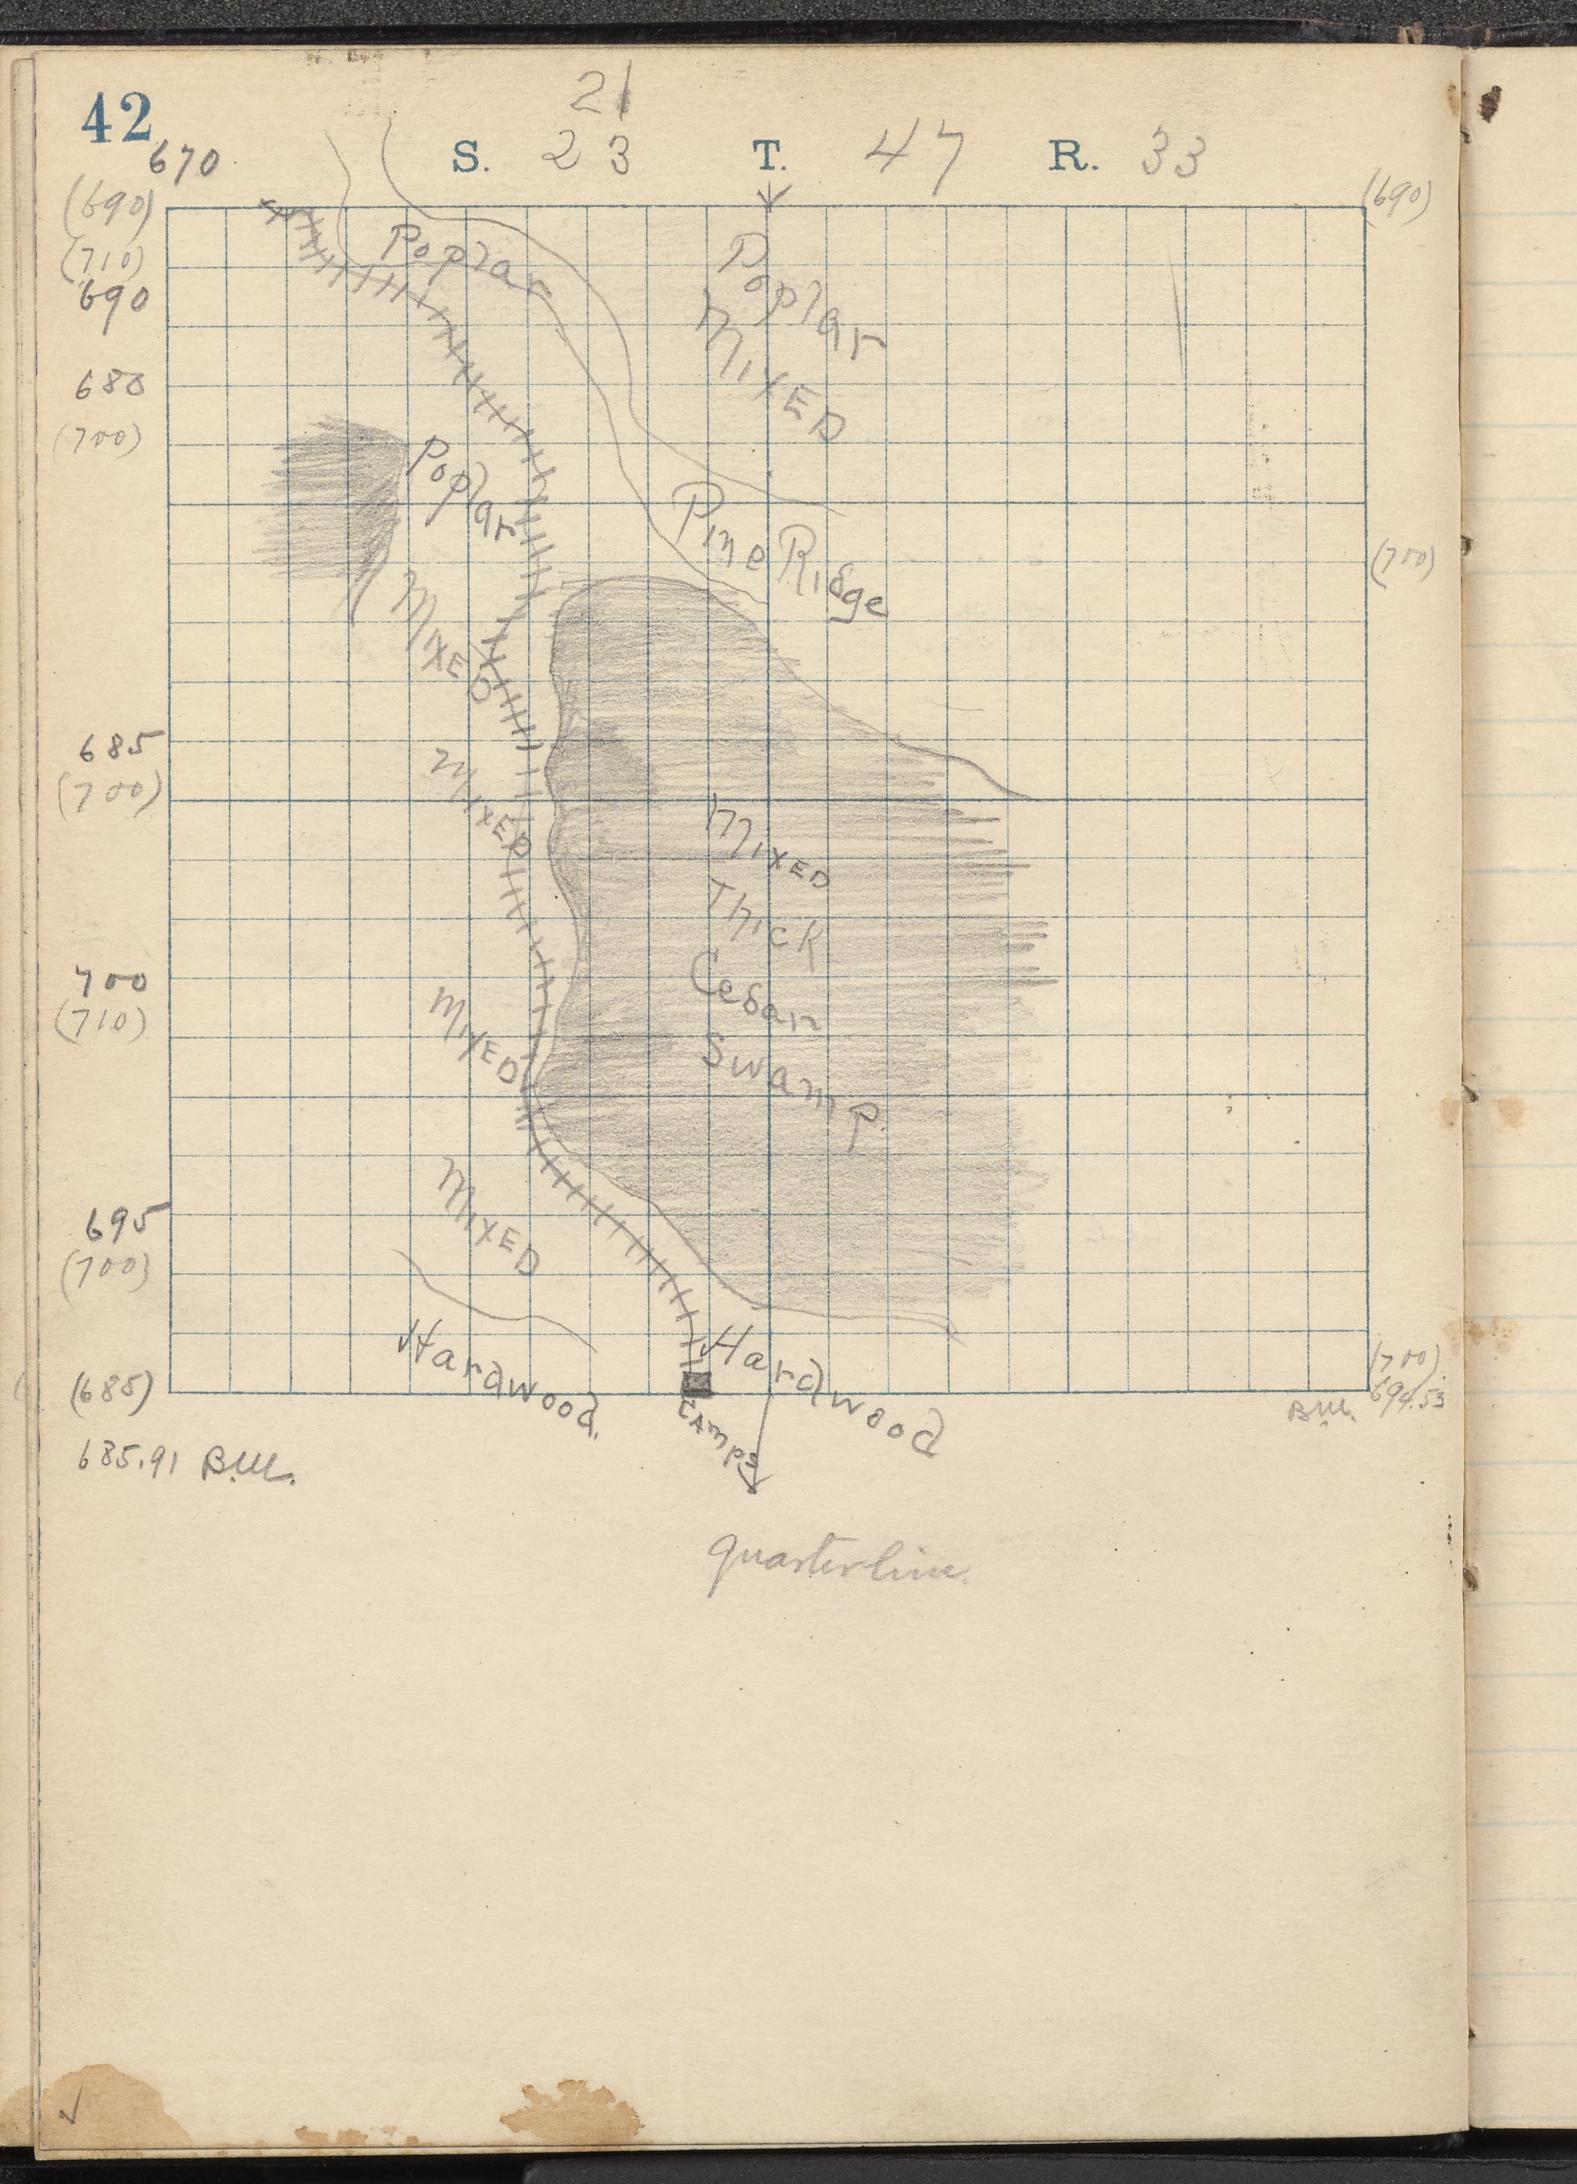 42
21
670
S. 23 T. 47 R. 33
(690)
(690)
(710)
690
Poplar
Poplar
Mixed
680
(700)
Poplar
Pine Ridge
(700)
Mixed
685
(700)
Mixed
Mixed
Thick
Cedar
Swamp.
700
(710)
Mixed
695
(700)
Mixed
Hardwood.
Hardwood
(685)
(700)
694.53
B.M.
Camps
685.91 B.M.
quarterline.